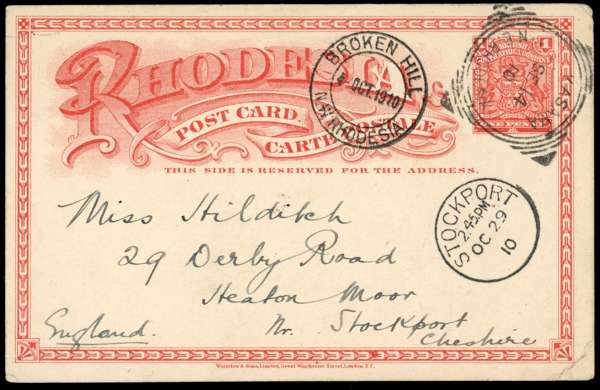 RHODESIA
POST CARD
CARTE POSTALE
THIS SIDE IS RESERVED FOR THE ADDRESS.
BROKEN HILL
OCT. 1910
RHODESIA
1
ONE PENNY
STOCKPORT
2.45PM
OC 29
10
Miss Hilditch
29 Derby Road
Heaton Moor
Nr. Stockport
England. Cheshire
Waterlow & Sons, Limited, Great Winchester Street, London, E.C.